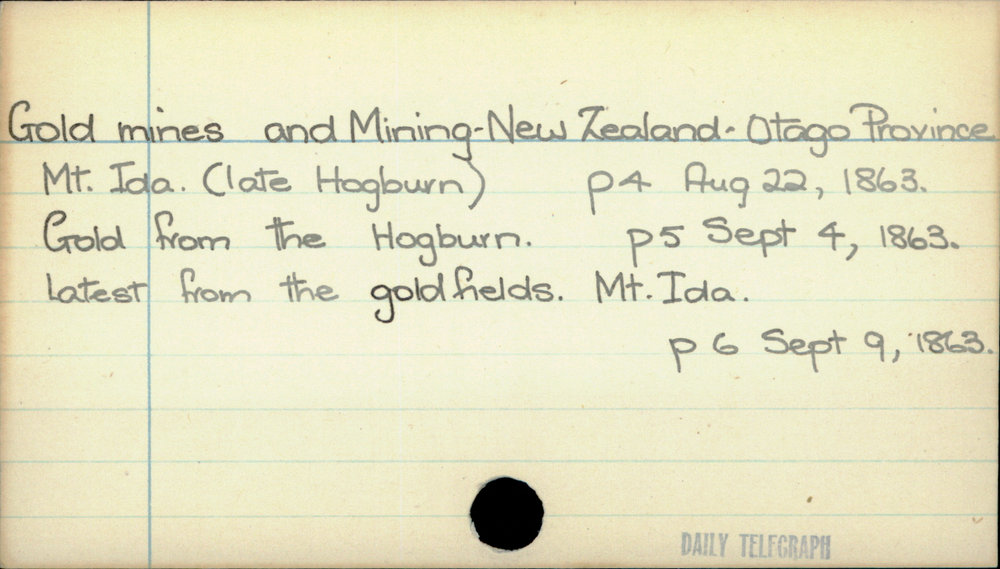 Gold mines and Mining-New Zealand-Otago Province
Mt. Ida. (late Hogburn) p4 Aug 22, 1863.
Gold from the Hogburn. p5 Sept 4, 1863.
Latest from the goldfields. Mt. Ida.
p 6 Sept 9, 1863.
DAILY TELEGRAPH